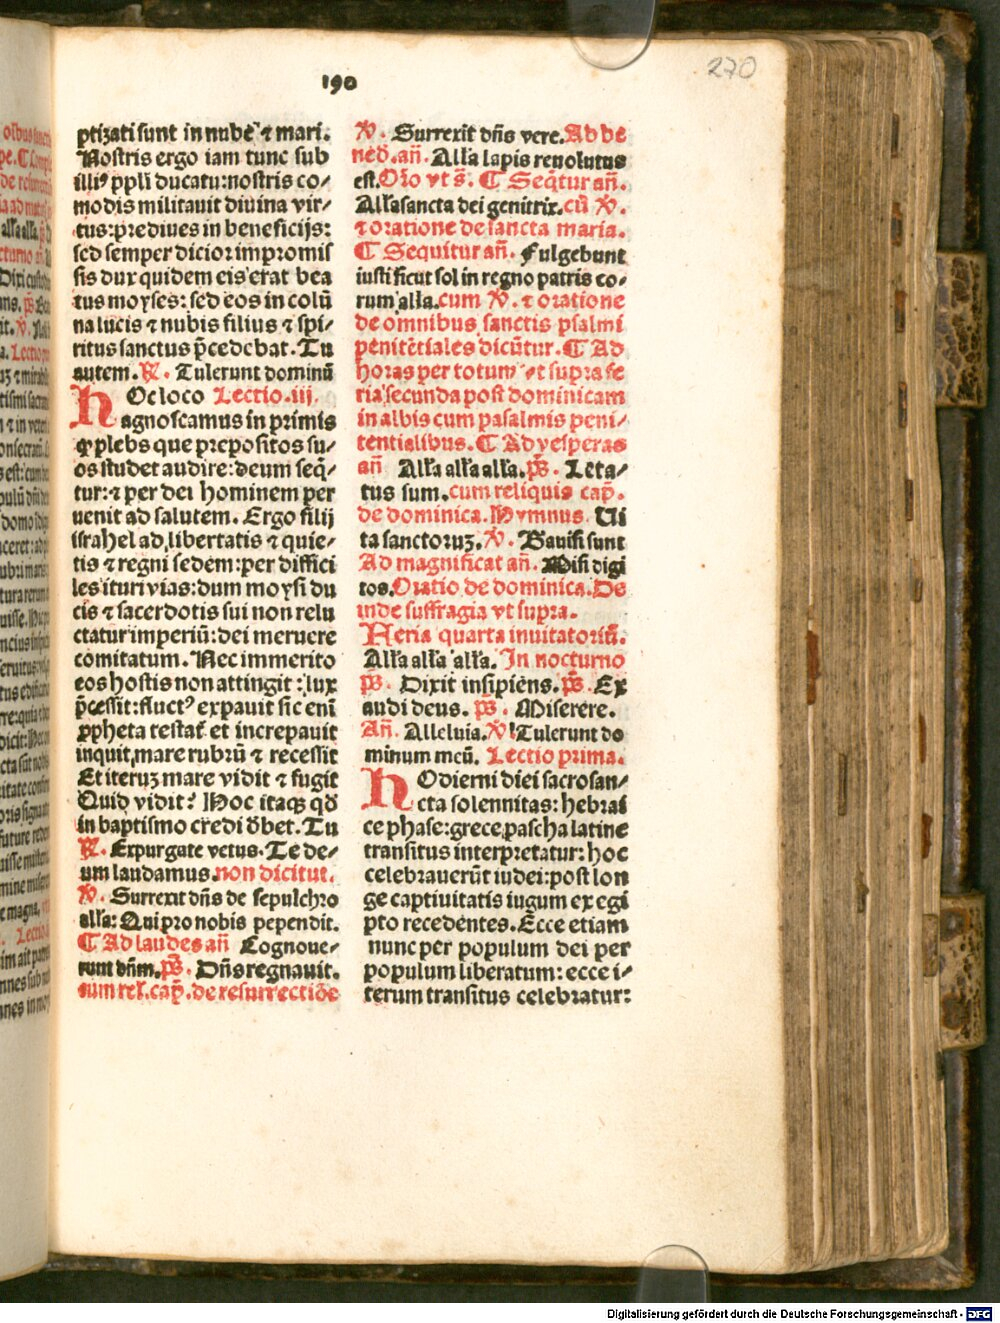 190
270
ptizati sunt in nube ⁊ mari.
Nostris ergo iam tunc sub
illiꝰ ppli ducatu: nostris co⸗
modis militauit diuina vir⸗
tus: pre diues in beneficijs:
sed semper dicior in promis
sis dux quidem eis erat bea
tus moyses: sed eos in colū
na lucis ⁊ nubis filius ⁊ spi⸗
ritus sanctus p̄cedebat. Tu
autem. ℟. Tulerunt dominū
HOc loco Lectio. iij.
agnoscamus in primis
ꝙ plebs que prepositos su⸗
os studet audire: deum seq̄⸗
tur: ⁊ per dei hominem per
uenit ad salutem. Ergo filij
israhel ad libertatis ⁊ quie⸗
tis ⁊ regni sedem: per diffici
les ituri vias: dum moysi du
cis ⁊ sacerdotis sui non relu
ctatur imperiū: dei meruere
comitatum. Nec immerito
eos hostis non attingit: lux
p̄cessit: fluctꝰ expauit sic eni
ꝓpheta testat̄ et increpauit
inquit mare rubrū ⁊ recessit
Et iteruꝫ mare vidit ⁊ fugit
Quid vidit? Hoc itaqꝫ qd̄
in baptismo credi dꝫbet. Tu
℟. Expurgate vetus. Te de⸗
um laudamus. non dicitur.
℣. Surrexit dn̄s de sepulchro
alła: Qui pro nobis pependit.
¶ Ad laudes an̄ Cognoue⸗
runt dn̄m. p̄s. Dn̄s regnauit.
cum rel̄. cap̄. de resurrectiōe
℣. Surrexit dn̄s vere. Ad be
ned̄. an̄. Alła lapis reuolutus
est. Or̄o vt s̄. ¶ Seq̄tur an̄.
Alła sancta dei genitrix. cū ℣.
⁊ oratione de sancta maria.
¶ Sequitur an̄. Fulgebunt
iusti sicut sol in regno patris eo⸗
rum alła. cum ℣. ⁊ oratione
de omnibus sanctis psalmi
penitētiales dicūtur. ¶ Ad
horas per totum vt supra fe
ria secunda post dominicam
in albis cum pasalmis peni⸗
tentialibus. ¶ Ad vesperas
an̄ Alła alła alla. p̄s. Leta⸗
tus sum. cum reliquis cap̄.
de dominica. Hymnus. Ui
ta sanctoruꝫ. ℣. Gauisi sunt
Ad magnificat an̄. Misi digi
tos. Oratio de dominica. De
inde suffragia vt supra.
Feria quarta inuitatoriū.
Alła alła alła. In nocturno
p̄s. Dixit insipiens. p̄s. Ex
audi deus. p̄s. Miserere.
An̄. Alleluia. ℣ Tulerunt do
minum meū. Lectio prima.
HOdierni diei sacrosan⸗
cta solennitas: hebrai
ce phase: grece pascha latine
transitus interpretatur: hoc
celebrauerūt iudei: post lon
ge captiuitatis iugum ex egi
pto recedentes. Ecce etiam
nunc per populum dei per
populum liberatum: ecce i⸗
terum transitus celebratur:
Digitalisierung gefördert durch die Deutsche Forschungsgemeinschaft - DFG